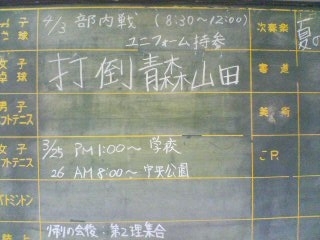 4/3 部内戦 (8:30~12:00) 次奏楽
ユニフォーム持参
女子 卓球 打倒青森山田 書道
男子 フトテニス 美術
女子 フトテニス 3/25 PM 1:00~ 学校
26 AM 8:00~ 中央公園
バドミントン
帰りの会後・第2理集合